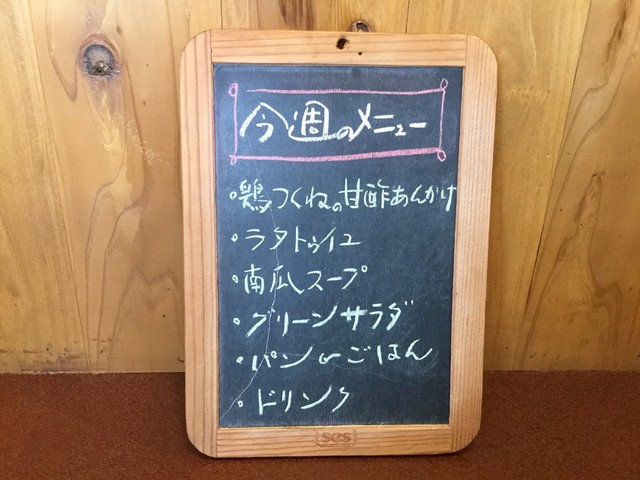 今週のメニュー
・鶏つくねの甘酢あんかけ
・ラタトゥイユ
・南瓜スープ
・グリーンサラダ
・パン or ごはん
・ドリンク
SCS